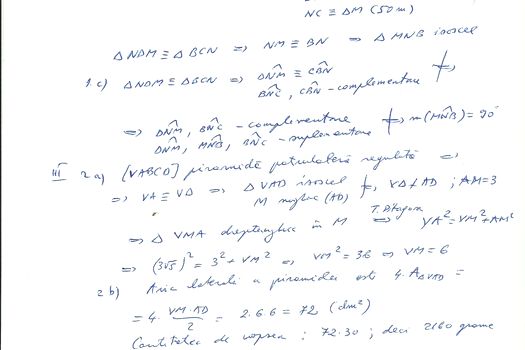 NC ≡ DM (50m)
Δ NDM ≡ Δ BCN ⇒ NM ≡ BN ⇒ Δ MNB isoscel
1.c) Δ NDM ≡ Δ BCN ⇒ DNM̂ ≡ CBN̂
BNĈ, CBN̂ - complementare
⇒ DNM̂, BNĈ - complementare
DNM̂, MNB̂, BNĈ - suplementare ⇒ m(MNB̂) = 90°
III 2 a) [VABCD] piramidă patrulateră regulată ⇒
⇒ VA ≡ VD ⇒ Δ VAD isoscel
M mijloc (AD) , AM = 3
⇒ Δ VMA dreptunghic în M ⇒ T. Pitagora VA² = VM² + AM²
⇒ (3√5)² = 3² + VM² ⇒ VM² = 36 ⇒ VM = 6
2 b) Aria laterală a piramidei este 4·A ΔVAD =
= 4· VM·AD / 2 = 2·6·6 = 72 (dm²)
Cantitatea de vopsea : 72·30 ; deci 2160 grame